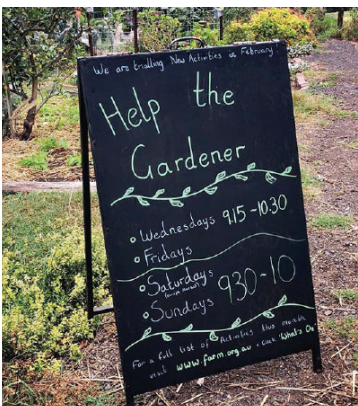 We are trialling New Activities in February!
Help the
Gardener
Wednesdays 9.15-10.30
Fridays
Saturdays
Sundays 930-10
For a full list of Activities this month
visit www.farm.org.au + Click 'What's On'